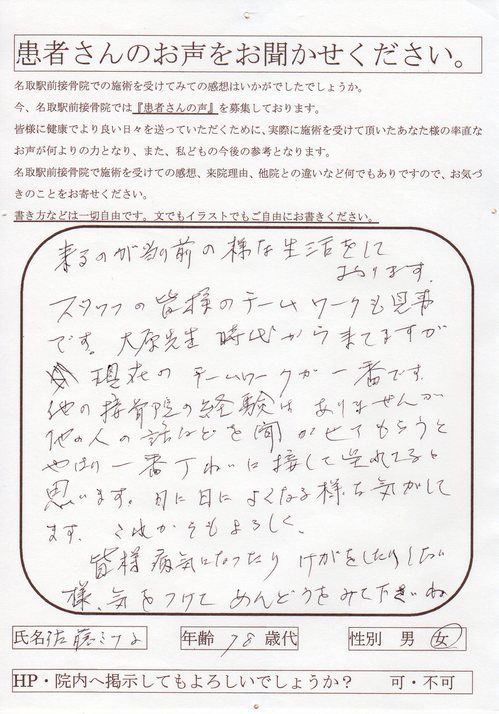 患者さんのお声をお聞かせください。
名取駅前接骨院での施術を受けてみての感想はいかがでしたでしょうか。
今、名取駅前接骨院では『患者さんの声』を募集しております。
皆様に健康でより良い日々を送っていただくために、実際に施術を受けて頂いたあなた様の率直な
お声が何よりの力となり、また、私どもの今後の参考となります。
名取駅前接骨院で施術を受けての感想、来院理由、他院との違いなど何でもありですので、お気づ
きのことをお寄せください。
書き方などは一切自由です。文でもイラストでもご自由にお書きください。
来るのが当り前の様な生活をして
おります。
スタッフの皆様のチームワークも見事
です。大原先生時代から来てますが
現在のチームワークが一番です。
他の接骨院の経験はありませんが
他の人の話などを聞かせてもらうと
やはり一番丁ねいに接して呉れてると
思います。日に日によくなる様な気がして
ます。これからもよろしく。
皆様病気になったりけがをしたりしない
様、気をつけてめんどうをみて下さいね
氏名 佐藤
年齢 78 歳代
性別 男 女
HP・院内へ掲示してもよろしいでしょうか？ 可・不可